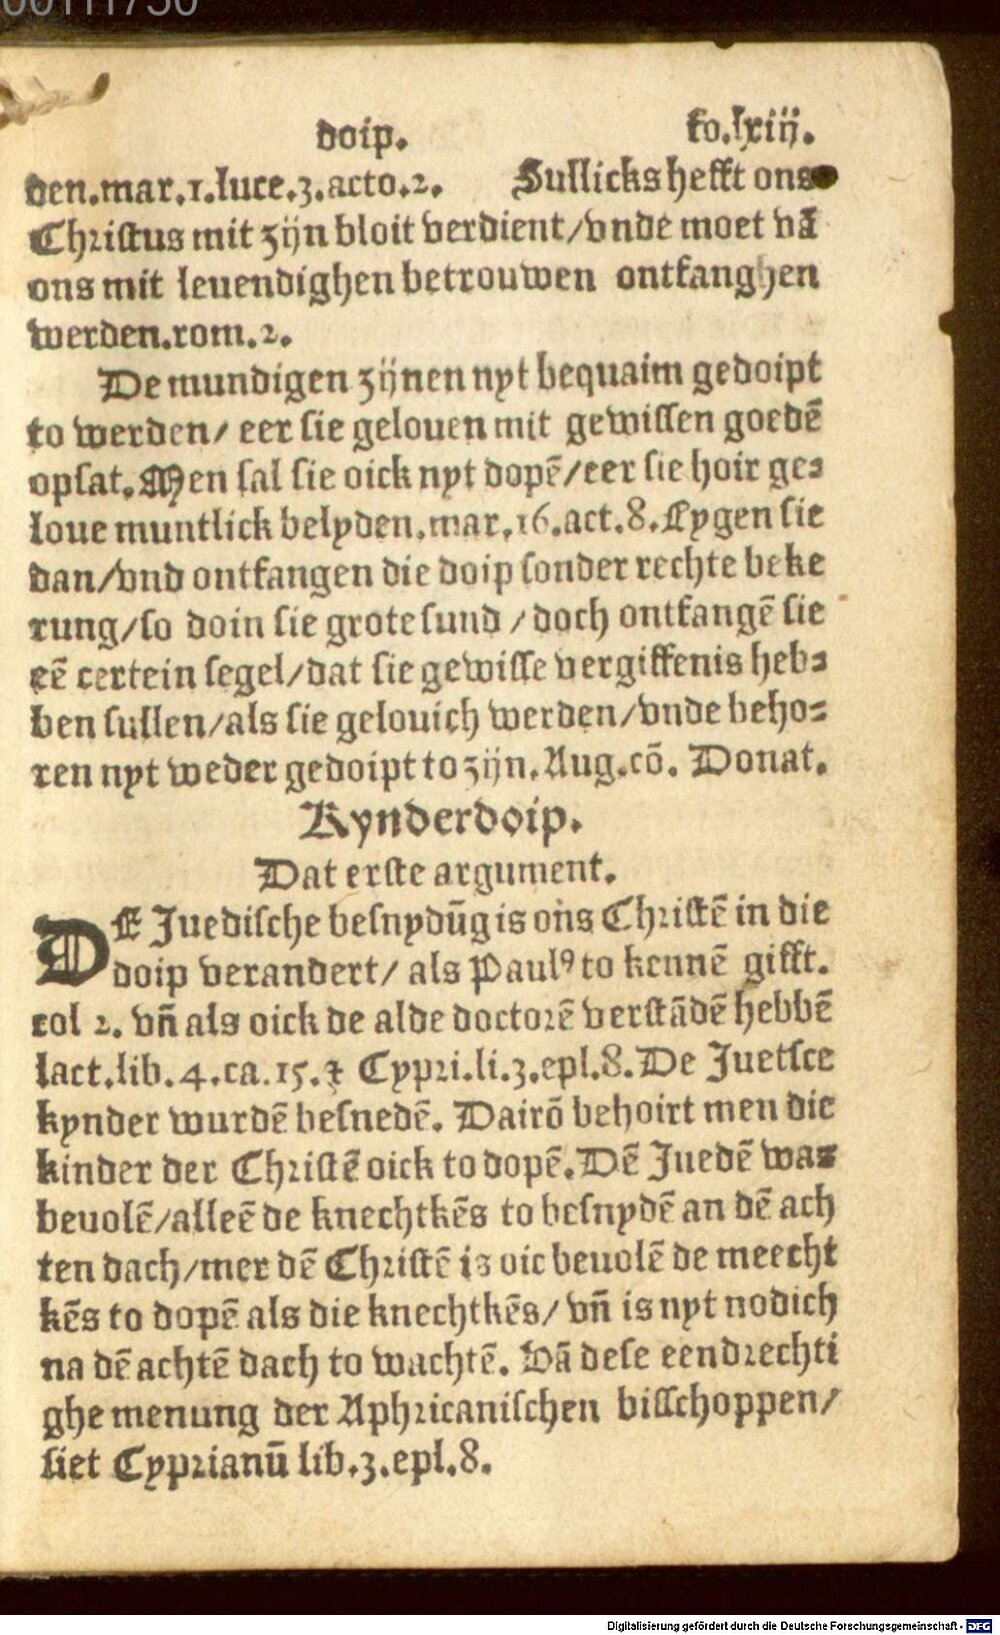 doip. fo.lxiij.
den.mar.1.luce.3.acto.2. Sullicks hefft ons
Christus mit zijn bloit verdient/vnde moet vā
ons mit leuendighen betrouwen ontfanghen
werden.rom.2.
De mundigen zijnen nyt bequaim gedoipt
to werden/ eer sie gelouen mit gewissen goedē
opsat. Men sal sie oick nyt dopē/eer sie hoir ge⸗
loue muntlick belyden.mar.16.act.8.Lygen sie
dan/vnd ontfangen die doip sonder rechte beke
rung/so doin sie grote sund / doch ontfangē sie
eē certein segel/dat sie gewisse vergiffenis heb⸗
ben sullen/als sie gelouich werden/vnde beho⸗
ren nyt weder gedoipt to zijn. Aug.cō. Donat.
Kynderdoip.
Dat erste argument.
DE Juedische besnydūg is ons Christē in die
doip verandert/ als Paulꝰ to kennē gifft.
col 2. vn̄ als oick de alde doctorē verstādē hebbē
lact.lib.4.ca.15.⁊ Cypri.li.3.epl.8. De Juetsce
kynder wurdē besnedē. Dairō behoirt men die
kinder der Christē oick to dopē. Dē Juedē was
beuolē/alleē de knechtkēs to besnydē an dē ach
ten dach/mer dē Christē is oic beuolē de meecht
kēs to dopē als die knechtkēs/ vn̄ is nyt nodich
na dē achtē dach to wachtē. Vā dese eendrechti
ghe menung der Aphricanischen bisschoppen/
siet Cyprianū lib.3.epl.8.
Digitalisierung gefördert durch die Deutsche Forschungsgemeinschaft - DFG